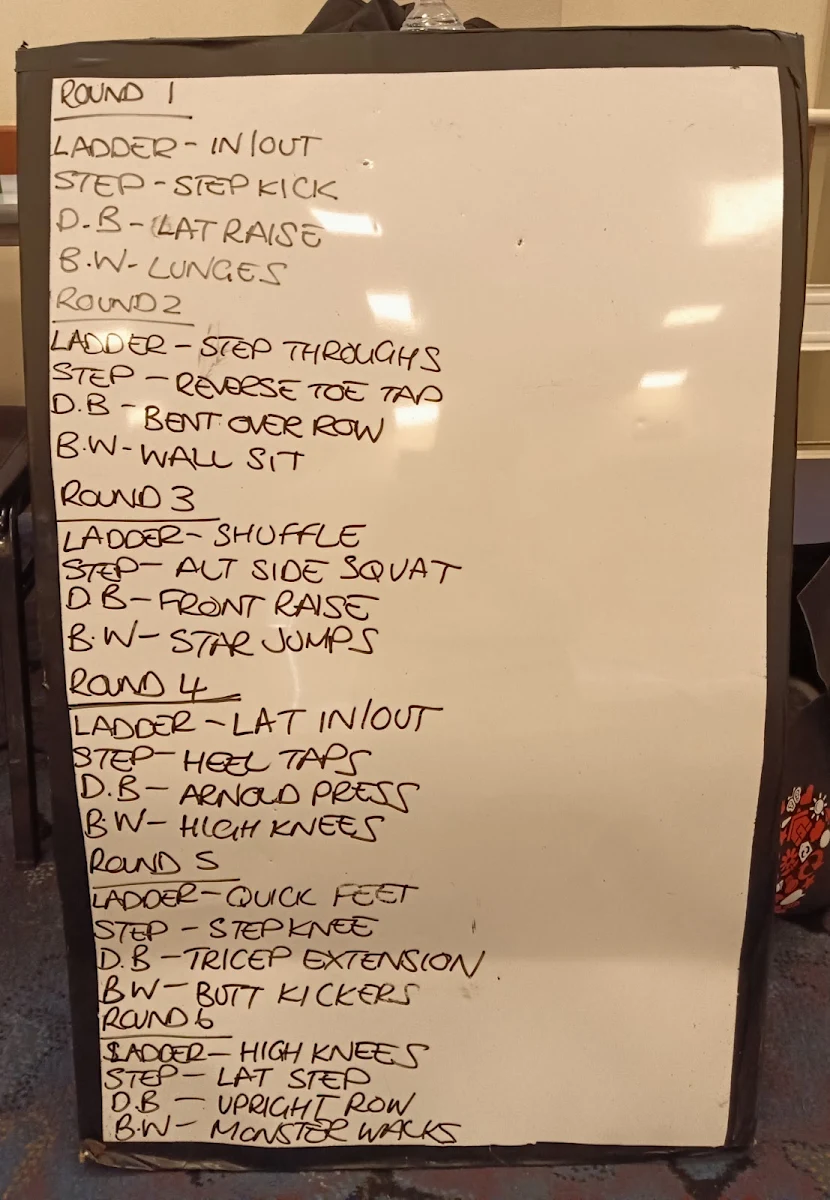 ROUND 1
LADDER - IN/OUT
STEP - STEP KICK
D.B - LAT RAISE
B.W - LUNGES
ROUND 2
LADDER - STEP THROUGHS
STEP - REVERSE TOE TAP
D.B - BENT OVER ROW
B.W - WALL SIT
ROUND 3
LADDER - SHUFFLE
STEP - ALT SIDE SQUAT
D.B - FRONT RAISE
B.W - STAR JUMPS
ROUND 4
LADDER - LAT IN/OUT
STEP - HEEL TAPS
D.B - ARNOLD PRESS
B.W - HIGH KNEES
ROUND 5
LADDER - QUICK FEET
STEP - STEP KNEE
D.B - TRICEP EXTENSION
BW - BUTT KICKERS
ROUND 6
LADDER - HIGH KNEES
STEP - LAT STEP
D.B - UPRIGHT ROW
B.W - MONSTER WALKS